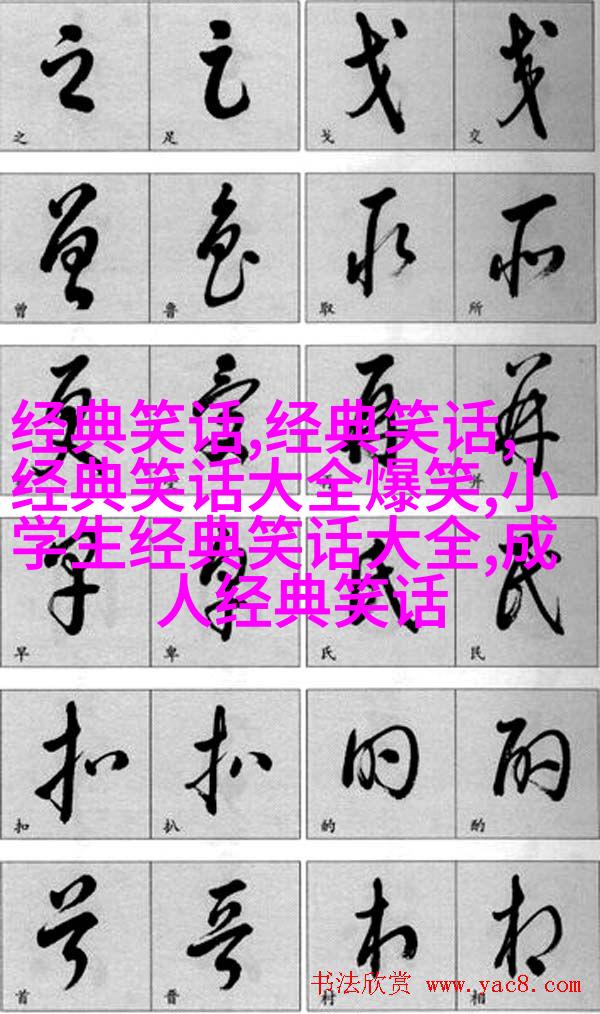 之 足 戈 交
曾 鲁 取 所
经典笑话,经典笑话,
经典笑话大全爆笑,小
学生经典笑话大全,成
人经典笑话
并
早 卑 氏 民
扣 扒 的 酌
首 晋 村 相
书法欣赏 www.yac8.com